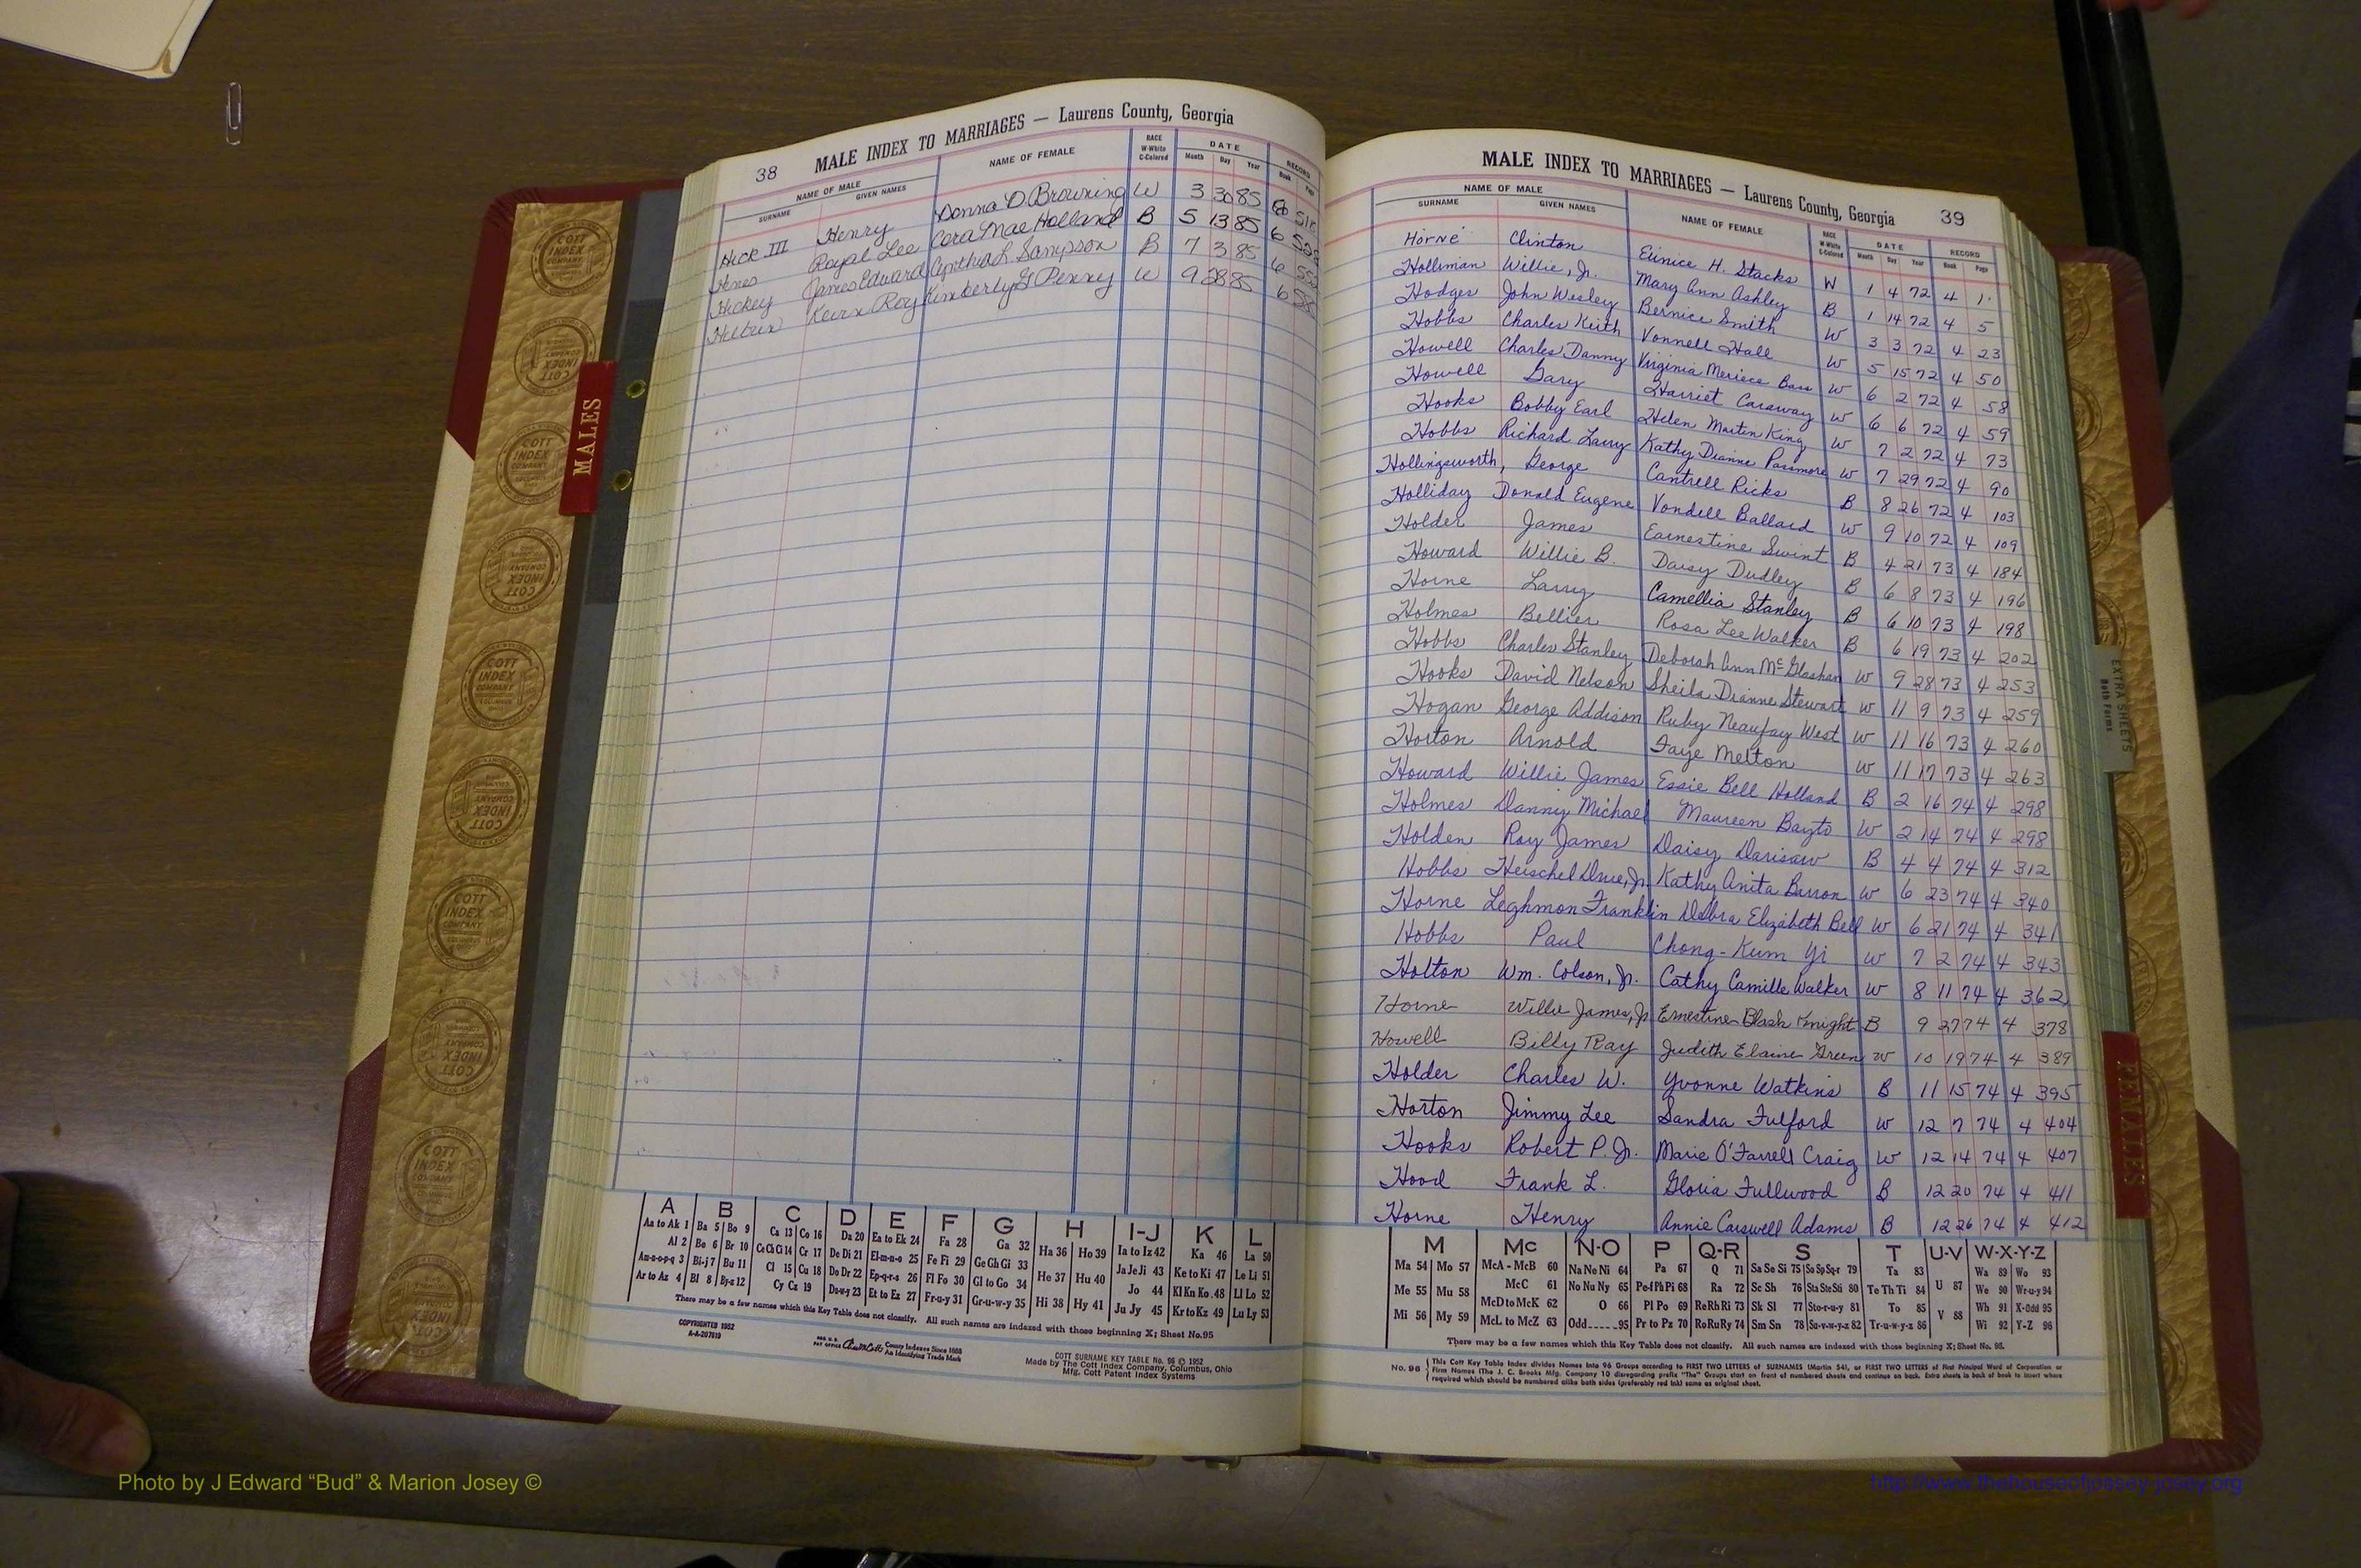 38 MALE INDEX TO MARRIAGES — Laurens County, Georgia
NAME OF MALE NAME OF FEMALE RACE W-White C-Colored DATE RECORD
SURNAME GIVEN NAMES Month Day Year Book Page
Hick III Henry Donna D. Browning W 3 30 85 6
Royal Lee Cora Mae Holland B 5 13 85 6
Hickey James Edward Cynthia L. Sampson B 7 3 85 6
Roy Kimberly G Penny W 9 28 85 6
A B C D E F G H I-J K L
Aa to Ak 1 Ba 5 Bo 9 Ca 13 Co 16 Da 20 Ea to Ek 24 Fa 28 Ga 32 Ha 36 Ho 39 Ia to Iz 42 Ka 46 La 50
Al 2 Be 6 Br 10 Ce Ch Ci 14 Cr 17 De Di 21 El-m-n-o 25 Fe Fi 29 Ge Gh Gi 33 He 37 Hu 40 Ja Je Ji 43 Ke to Ki 47 Le Li 51
Am-n-o-p-q 3 Bi-j 7 Bu 11 Cl 15 Cu 18 Do Dr 22 Ep-q-r-s 26 Fl Fo 30 Gl to Go 34 Hi 38 Hy 41 Jo 44 Kl Kn Ko 48 Ll Lo 52
Ar to Az 4 Bl 8 By-z 12 Cy Cz 19 Du-w-y 23 Et to Ez 27 Fr-u-y 31 Gr-u-w-y 35 Ju Jy 45 Kr to Kz 49 Lu Ly 53
There may be a few names which this Key Table does not classify. All such names are indexed with those beginning X; Sheet No.95
COPYRIGHTED 1952
A-A-207819
County Indexes Since 1888
An Identifying Trade Mark
COTT SURNAME KEY TABLE No. 96 © 1952
Made by The Cott Index Company, Columbus, Ohio
Mfg. Cott Patent Index Systems
MALE INDEX TO MARRIAGES — Laurens County, Georgia 39
NAME OF MALE NAME OF FEMALE RACE W-White C-Colored DATE RECORD
SURNAME GIVEN NAMES Month Day Year Book Page
Horne Clinton Eunice H. Stacks W 1 4 72 4 1
Holliman Willie, Jr. Mary Ann Ashley B 1 14 72 4 5
Hodges John Wesley Bernice Smith W 3 3 72 4 23
Hobbs Charles Keith Vonnell Hall W 5 15 72 4 50
Howell Charles Danny Virginia Meriece Bass W 6 2 72 4 58
Howell Gary Harriet Caraway W 6 6 72 4 59
Hooks Bobby Earl Helen Martin King W 7 2 72 4 73
Hobbs Richard Larry Kathy Dianne Passmore W 7 29 72 4 90
Hollingsworth, George Cantrell Ricks B 8 26 72 4 103
Holliday Donald Eugene Vondell Ballard W 9 10 72 4 109
Holder James Earnestine Swint B 4 21 73 4 184
Howard Willie B. Daisy Dudley B 6 8 73 4 196
Horne Larry Camellia Stanley B 6 10 73 4 198
Holmes Bellier Rosa Lee Walker B 6 19 73 4 202
Hobbs Charles Stanley Deborah Ann McGlashan W 9 28 73 4 253
Hooks David Nelson Sheila Dianne Stewart W 11 9 73 4 259
Hogan George Addison Ruby Neaufay West W 11 16 73 4 260
Horton Arnold Faye Melton W 11 17 73 4 263
Howard Willie James Essie Bell Holland B 2 16 74 4 298
Holmes Danny Michael Maureen Bazto W 2 14 74 4 298
Holden Roy James Daisy Darisaw B 4 4 74 4 312
Hobbs Herschel Drue, Jr. Kathy Anita Barron W 6 23 74 4 340
Horne Leghmon Franklin Debra Elizabeth Bell W 6 21 74 4 341
Hobbs Paul Chong-Kum Yi W 7 2 74 4 343
Holton Wm. Colson, Jr. Cathy Camille Walker W 8 11 74 4 362
Horne Willie James, Jr Ernestine Blash Knight B 9 27 74 4 378
Howell Billy Ray Judith Elaine Green W 10 19 74 4 389
Holder Charles W. Yvonne Watkins B 11 15 74 4 395
Horton Jimmy Lee Sandra Fulford W 12 7 74 4 404
Hooks Robert P. Jr. Marie O'Farrell Craig W 12 14 74 4 407
Hood Frank L. Gloria Fullwood B 12 20 74 4 411
Horne Henry Annie Carswell Adams B 12 26 74 4 412
M Mc N-O P Q-R S T U-V W-X-Y-Z
Ma 54 Mo 57 McA - McB 60 Na Ne Ni 64 Pa 67 Q 71 Sa Se Si 75 So Sp Sq-r 79 Ta 83 U 87 Wa 89 Wo 93
Me 55 Mu 58 McC 61 No Nu Ny 65 Pe-f Ph Pi 68 Ra 72 Sc Sh 76 Sta Ste Sti 80 Te Th Ti 84 V 88 We 90 Wr-u-y 94
Mi 56 My 59 McD to McK 62 O 66 Pl Po 69 Re Rh Ri 73 Sk Sl 77 Sto-r-u-y 81 To 85 Wh 91 X-Odd 95
McL to McZ 63 Odd 95 Pr to Pz 70 Ro Ru Ry 74 Sm Sn 78 Su-v-w-y-z 82 Tr-u-w-y-z 86 Wi 92 Y-Z 96
There may be a few names which this Key Table does not classify. All such names are indexed with those beginning X; Sheet No. 95.
No. 96 This Cott Key Table Index divides Names Into 96 Groups according to FIRST TWO LETTERS of SURNAMES (Martin 54), or FIRST TWO LETTERS of First Principal Word of Corporation or
Firm Names (The J. C. Brooks Mfg. Company 10 disregarding prefix "The" Groups start on front of numbered sheets and continue on back. Extra sheets in back of book to insert where
required which should be numbered alike both sides (preferably red ink) same as original sheet.
MALES
EXTRA SHEETS
Both Forms
FEMALES
COTT INDEX COMPANY
Photo by J Edward “Bud” & Marion Josey ©
http://www.thehouseofjossey-josey.org